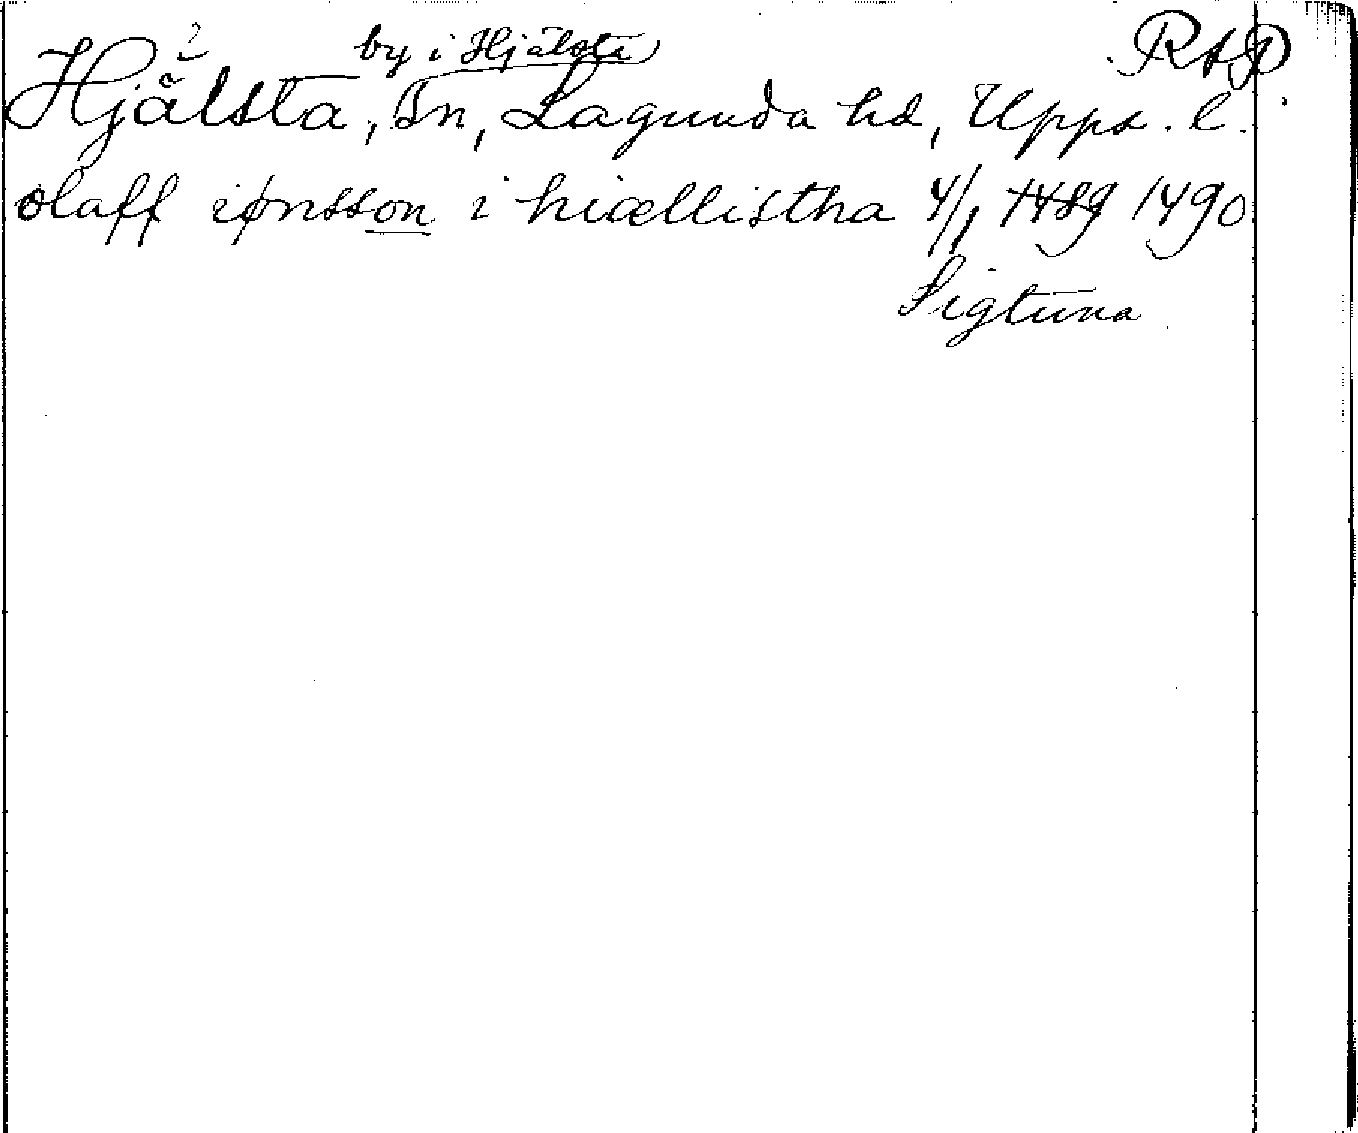 by i Hjälsta RAP
Hjälsta, sn, Lagunda hd, Upps. l.
olaff iønsson i hiællistha 4/1 1489 1490
Sigtuna